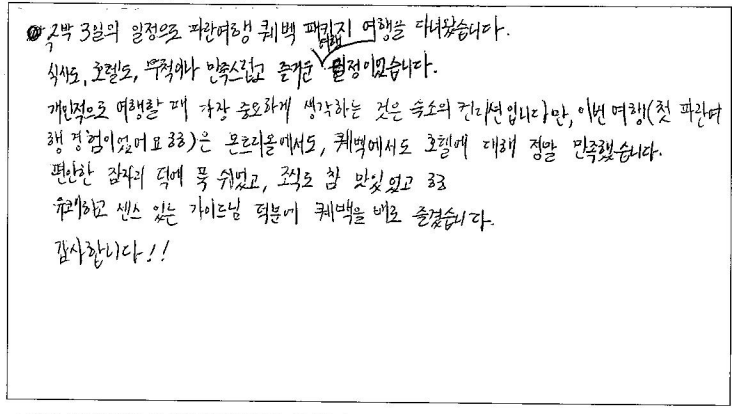 2박 3일의 일정으로 파란여행 퀘백 패키지 여행을 다녀왔습니다.
식사도, 호텔도, 무척이나 만족스럽고 즐거운 여행 일정이었습니다.
개인적으로 여행할 때 가장 중요하게 생각하는 것은 숙소의 컨디션입니다만, 이번 여행(첫 파란여
행 경험이었어요 ㅎㅎ)은 몬트리올에서도, 퀘백에서도 호텔에 대해 정말 만족했습니다.
편안한 잠자리 덕에 푹 쉬었고, 조식도 참 맛있었고 ㅎㅎ
유쾌하고 센스 있는 가이드님 덕분에 퀘백을 배로 즐겼습니다.
감사합니다!!